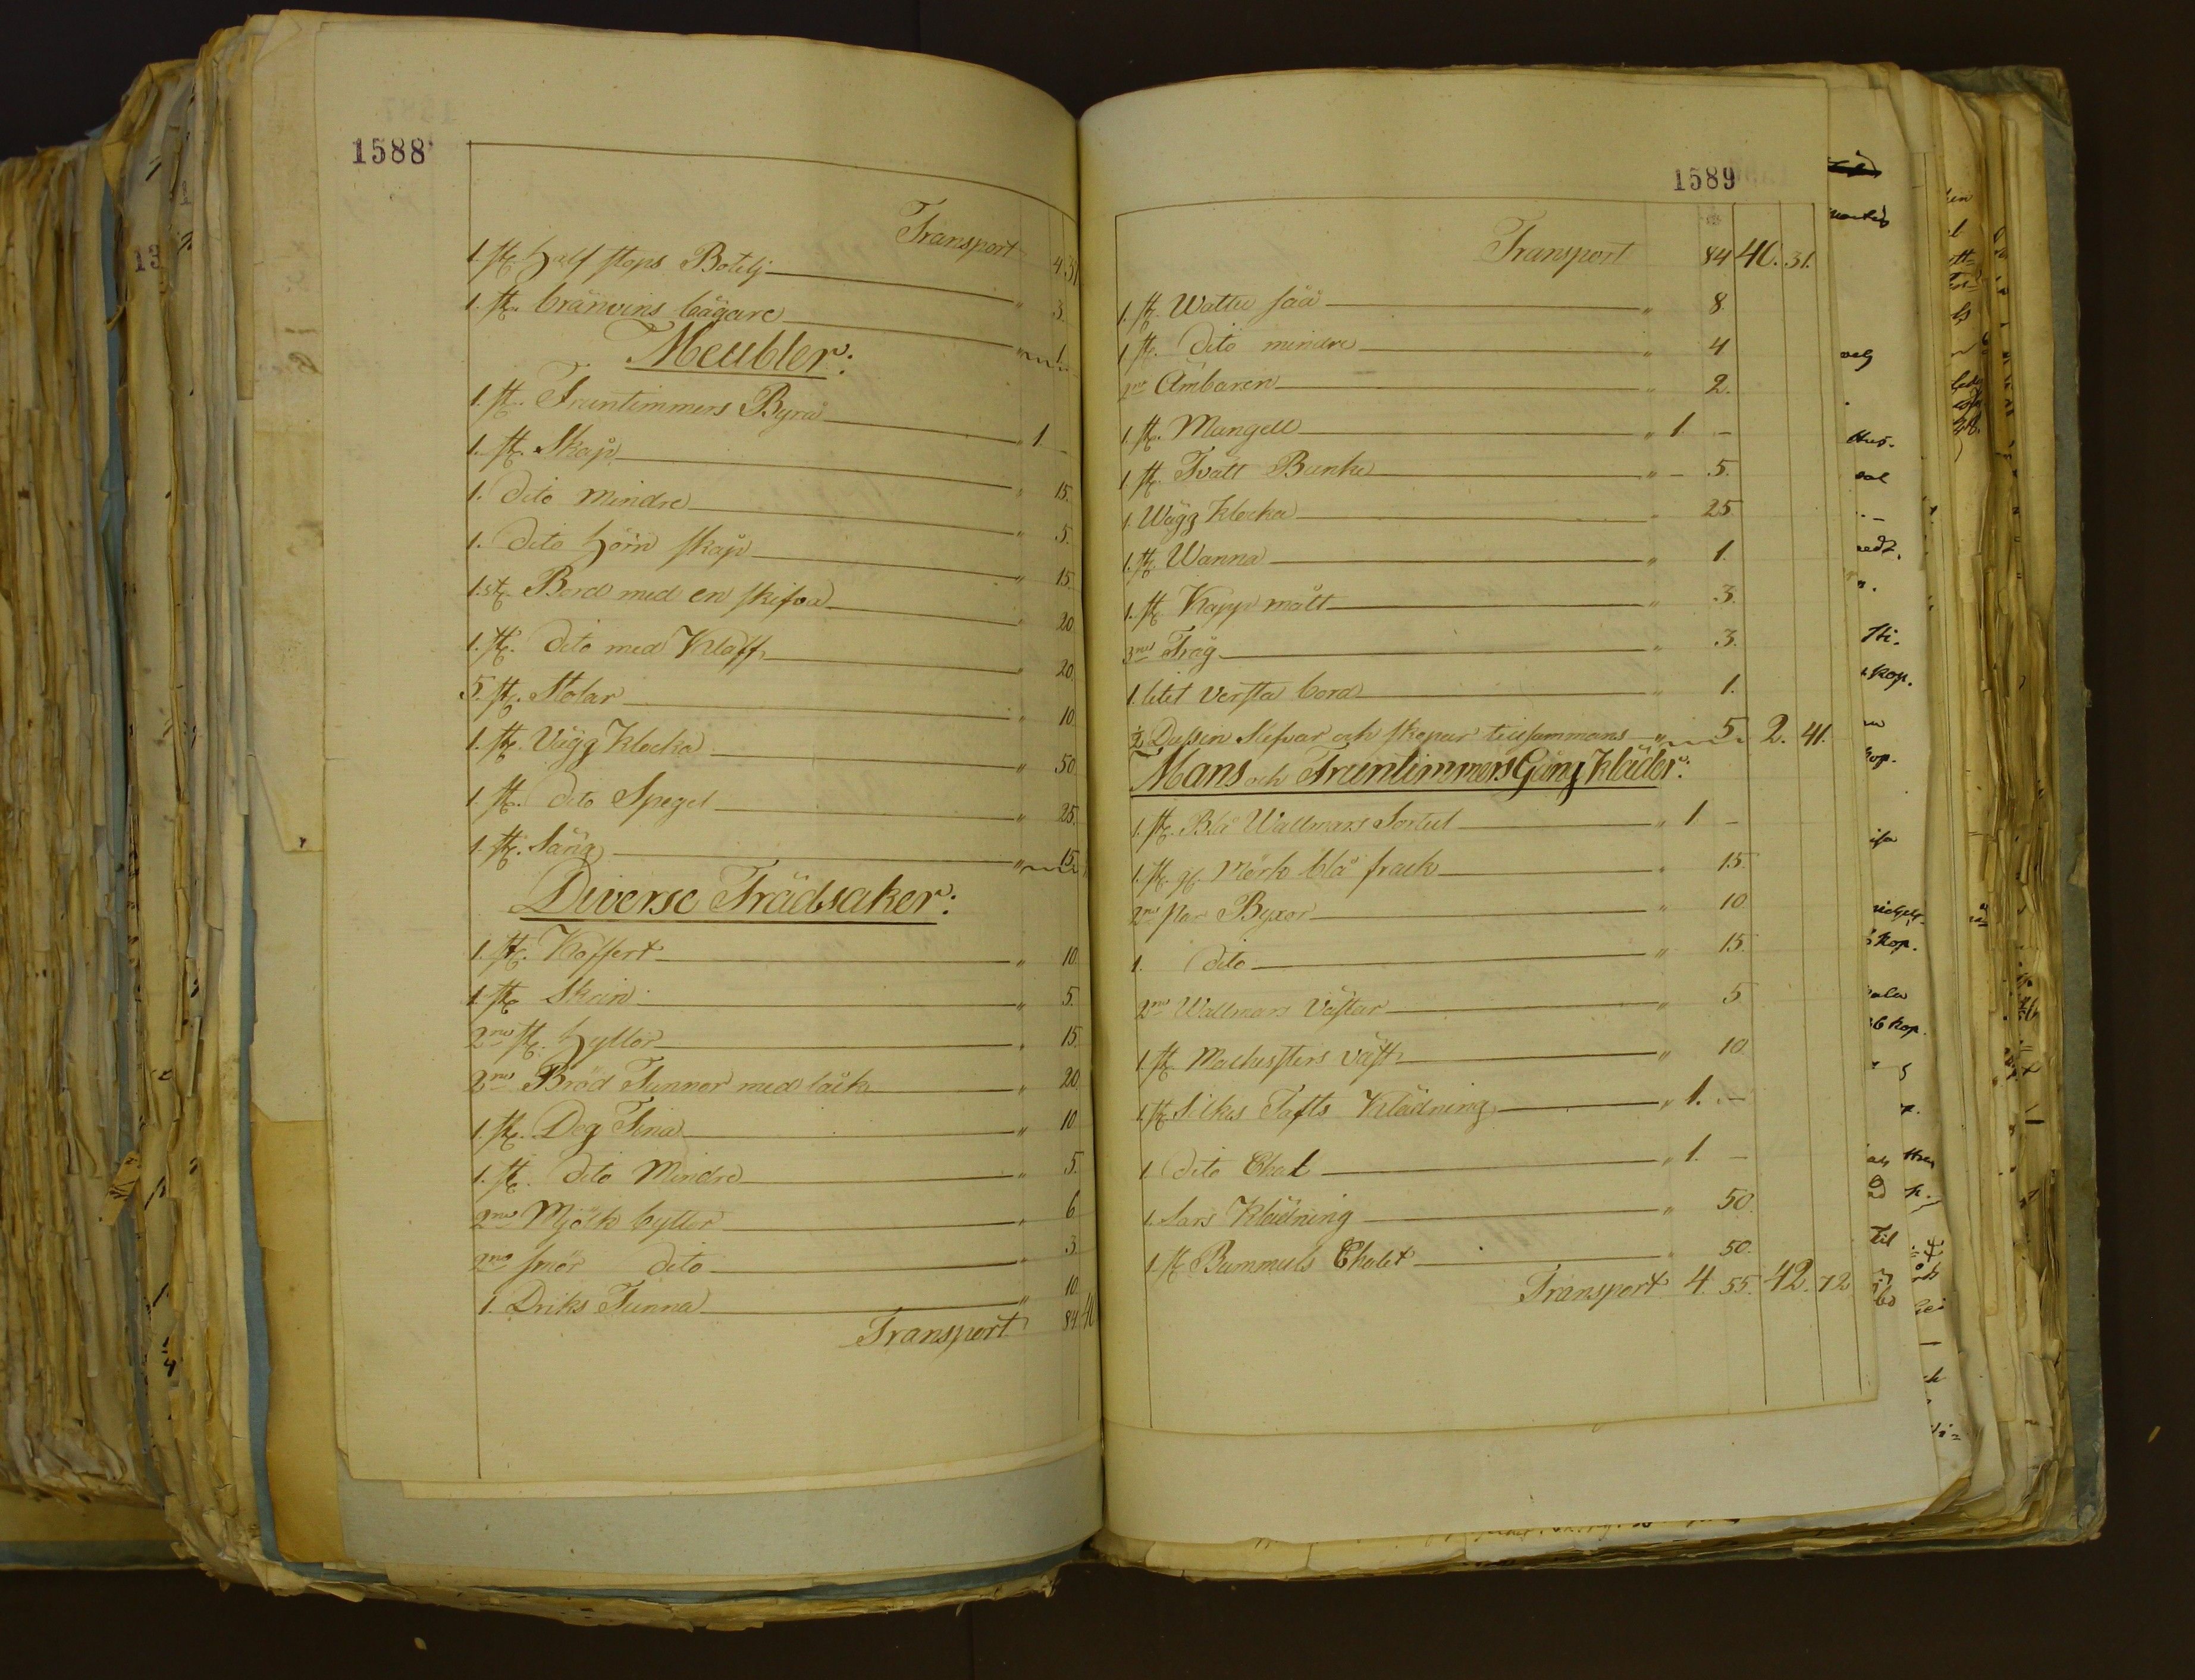 1588
Transport 4 31
1. st. Half stops Botelj " 3.
1. st. bränvins bägare " 1.
Meubler:
1. st. Fruntimmers Byrå " 1. –
1. st. Skåp " 15.
1. dito mindre " 5.
1. dito Hörn skåp " 15.
1. st. Bord med en skifva " 20
1. st. dito med Klaff " 20.
5. st. Stolar " 10
1. st. Vägg Klocka " 50
1. st. dito Spegel " 25.
1. st. Säng " 15.
Diverse Trädsaker:
1. st. Koffert " 10
1. st. Skrin " 5.
2ne st. Hyllor " 15.
2ne Bröd Tunnor med låck " 20.
1. st. Deg Tina " 10
1. st. dito Mindre " 5.
2ne Mjölk bytter " 6
2ne smör dito " 3.
1. Driks Tunna " 10.
Transport 84. 40
1589
Transport 84 40. 31.
1. st. Wattu såå " 8.
1. st. dito mindre " 4
2ne Ämbaren " 2.
1. st. Mangell " 1. –
1 st. Tvätt Bunke " – 5.
1. Wägg Klocka " 25
1. st. Wanna " 1.
1. st. Kapp mått " 3.
3ne Tråg " 3.
1. litet versta bord " 1.
½ Dussin Slefvar och skopar tillsammans " 5. 2. 41.
Mans och Fruntimmers Gång Kläder:
1. st. Blå Wallmars Sortut " 1 –
1. st. gl. Mörk blå frack " 15.
2ne par Byxor " 10
1. dito " 15.
2ne Wallmars Västar " 5
1. st. Machesters väst " 10
1. st. Silkes Tafts Klädning " 1. –
1. dito Chal " 1. –
1. Sars Klädning " 50.
1. st. Bummuls Chalet " 50.
Transport 4. 55. 42. 72